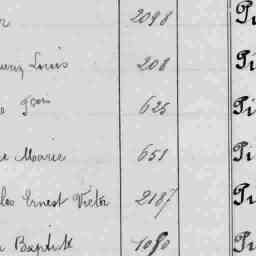 2098 Pi
Louis 208 Pi
625 Pi
Marie 651 Pi
Ernest Victor 2187 Pi
Baptiste 1090 Pi